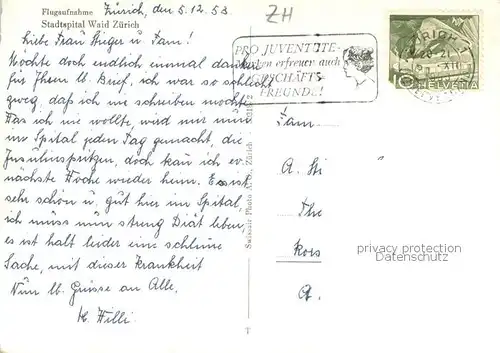 Flugaufnahme
Stadtspital Waid Zürich
Zürich, den 5.12.53
ZH
Liebe Frau Stiger u Fam!
Möchte doch endlich einmal danken
für Ihren lb. Brief, ich war so schlecht
zweg, dass ich nie schreiben mochte.
Was ich nie wollte, wird mir nun
im Spital jeden Tag gemacht, die
Insulinspritzen, doch kann ich er.
nächste Woche wieder heim. Es ist
sehr schön u, gut hier im Spital
ich muss nun streng Diät leben
es ist halt leider eine schlimme
Sache, mit dieser Krankheit
Nun lb. Grüsse an Alle.
Willi
Swissair Photo A.G., Zürich
PRO JUVENTUTE-
Marken erfreuen auch
GESCHÄFTS-
FREUNDE!
ZÜRICH 1
XII
10
HELVETIA
Fam
A. Sti
The
A.
privacy protection
Datenschutz